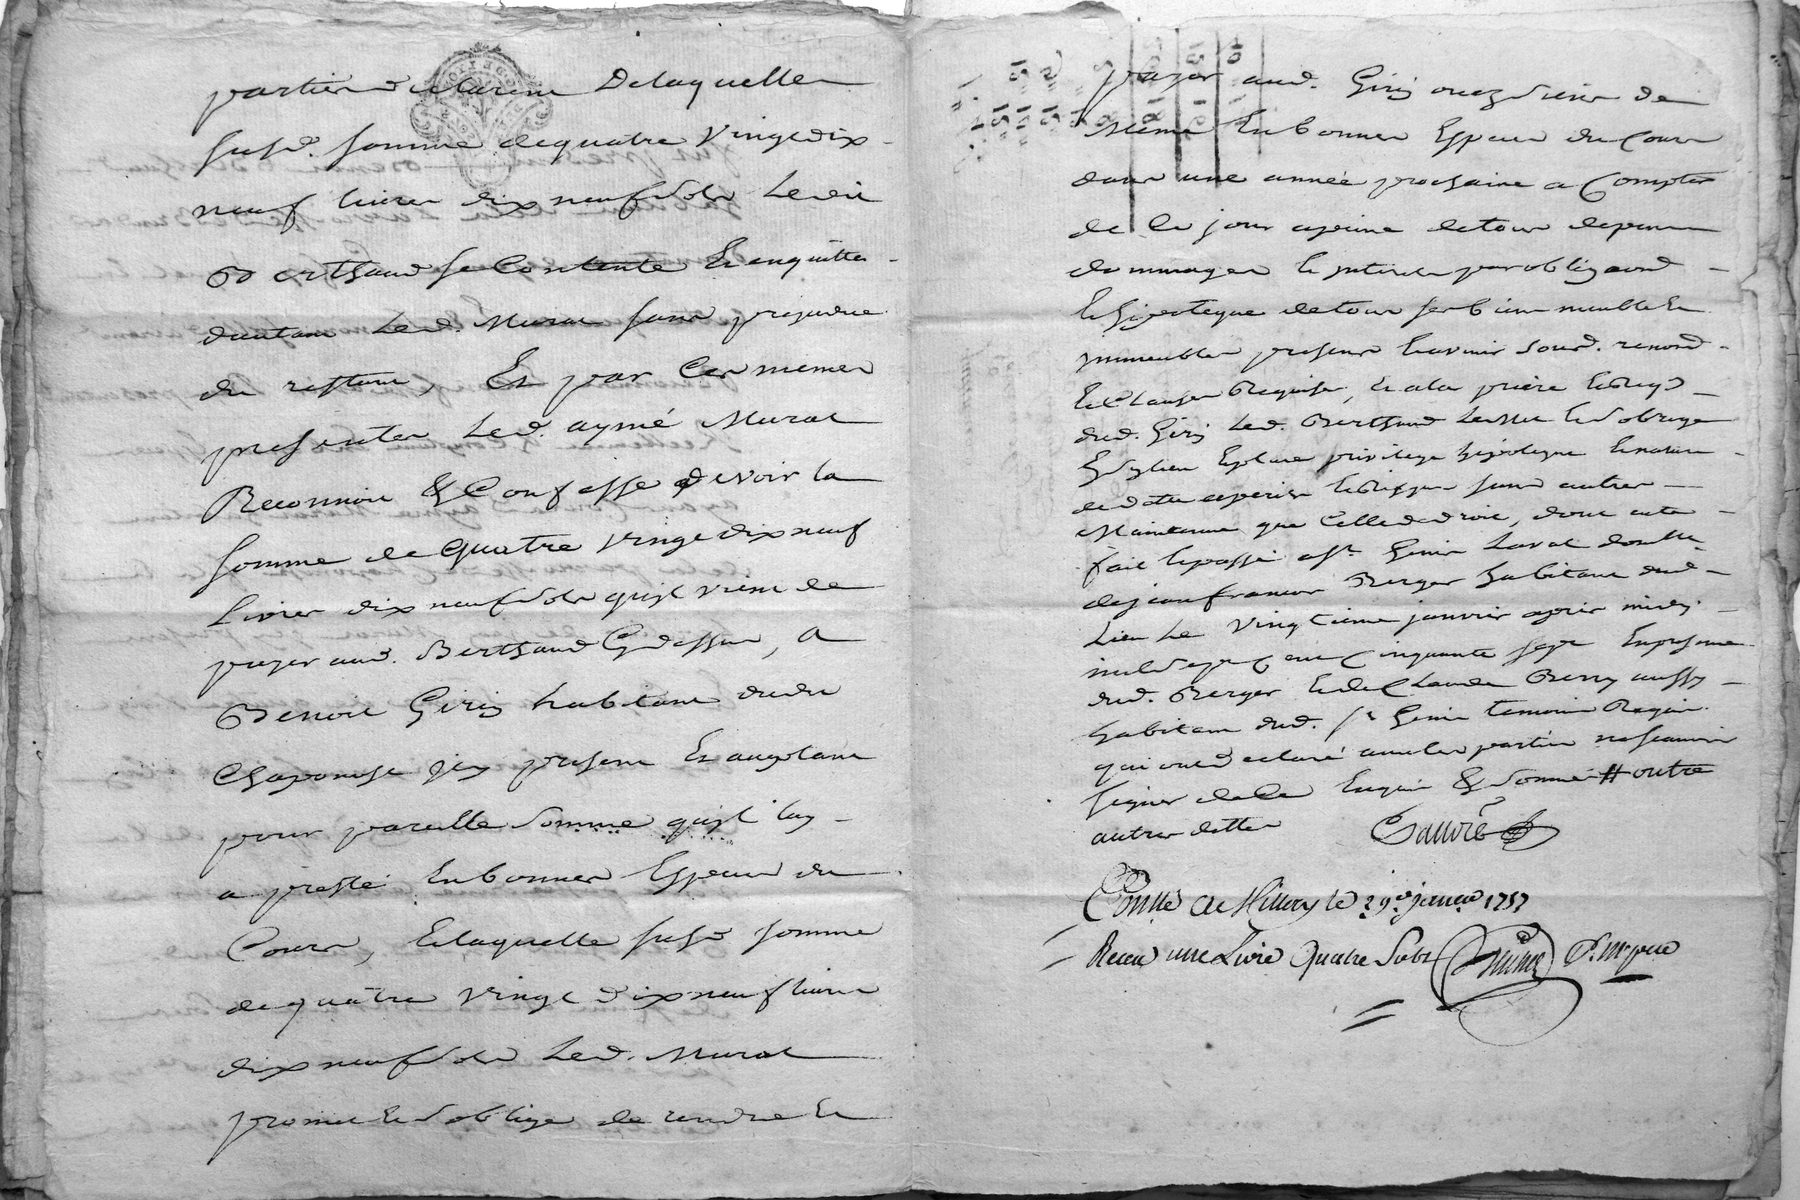 parties Delaquelle
susd. somme dequatre vingt dix
neuf livres dix neuf sols Ledit
Berthaud se Contente Et enquitte
dautant Led. Murat sans prejudice
du restant, Et par Ces memes
presentes Led. aymé Murat
Reconnoit & Confesse devoir la
somme de quatre vingt dix neuf
Livres dix neuf sols quil vient de
payer aud. Berthaud Cydessus, A
Benoit Giry habitant dudit
Chaponost icy present Et acceptant
pour pareille somme quil luy
a presté En bonnes Especes du
Cours, Et laquelle susd. somme
de quatre vingt dix neuf livres
dix neuf sols Led. Murat
promet Et soblige de rendre Et
payer aud. Giry ou es siens de
meme En bonnes Especes du Cours
dans une année prochaine a Compter
de Ce jour apeine detous depens
dommages Et interets par obligaond
Et hipoteque detous ses biens meubles Et
immeubles presens Et avenir Soud. renond
Et Clauses Requises, Et ala priere Et Reqd
dud. Giry Led. Berthaud
Lieu Et place privilege hipoteque Et nature
de dette sans autre
Maintenue que Celle de droit, dont acte
fait Et passé a St Genis Laval
de jean francois Berger habitant dud
Lieu Le vingtieme janvier apres midy
mil sept Cent Cinquante sept En presence
dud. Berger Et de Claude Berry aussy
habitant dud. St Genis temoins Requis
qui ont declaré avec les parties ne scavoir
signer de Ce Enquis & sommés # outre
autres dettes
Conllé a le 29e janvier 1757
Receu une Livre Quatre Sols